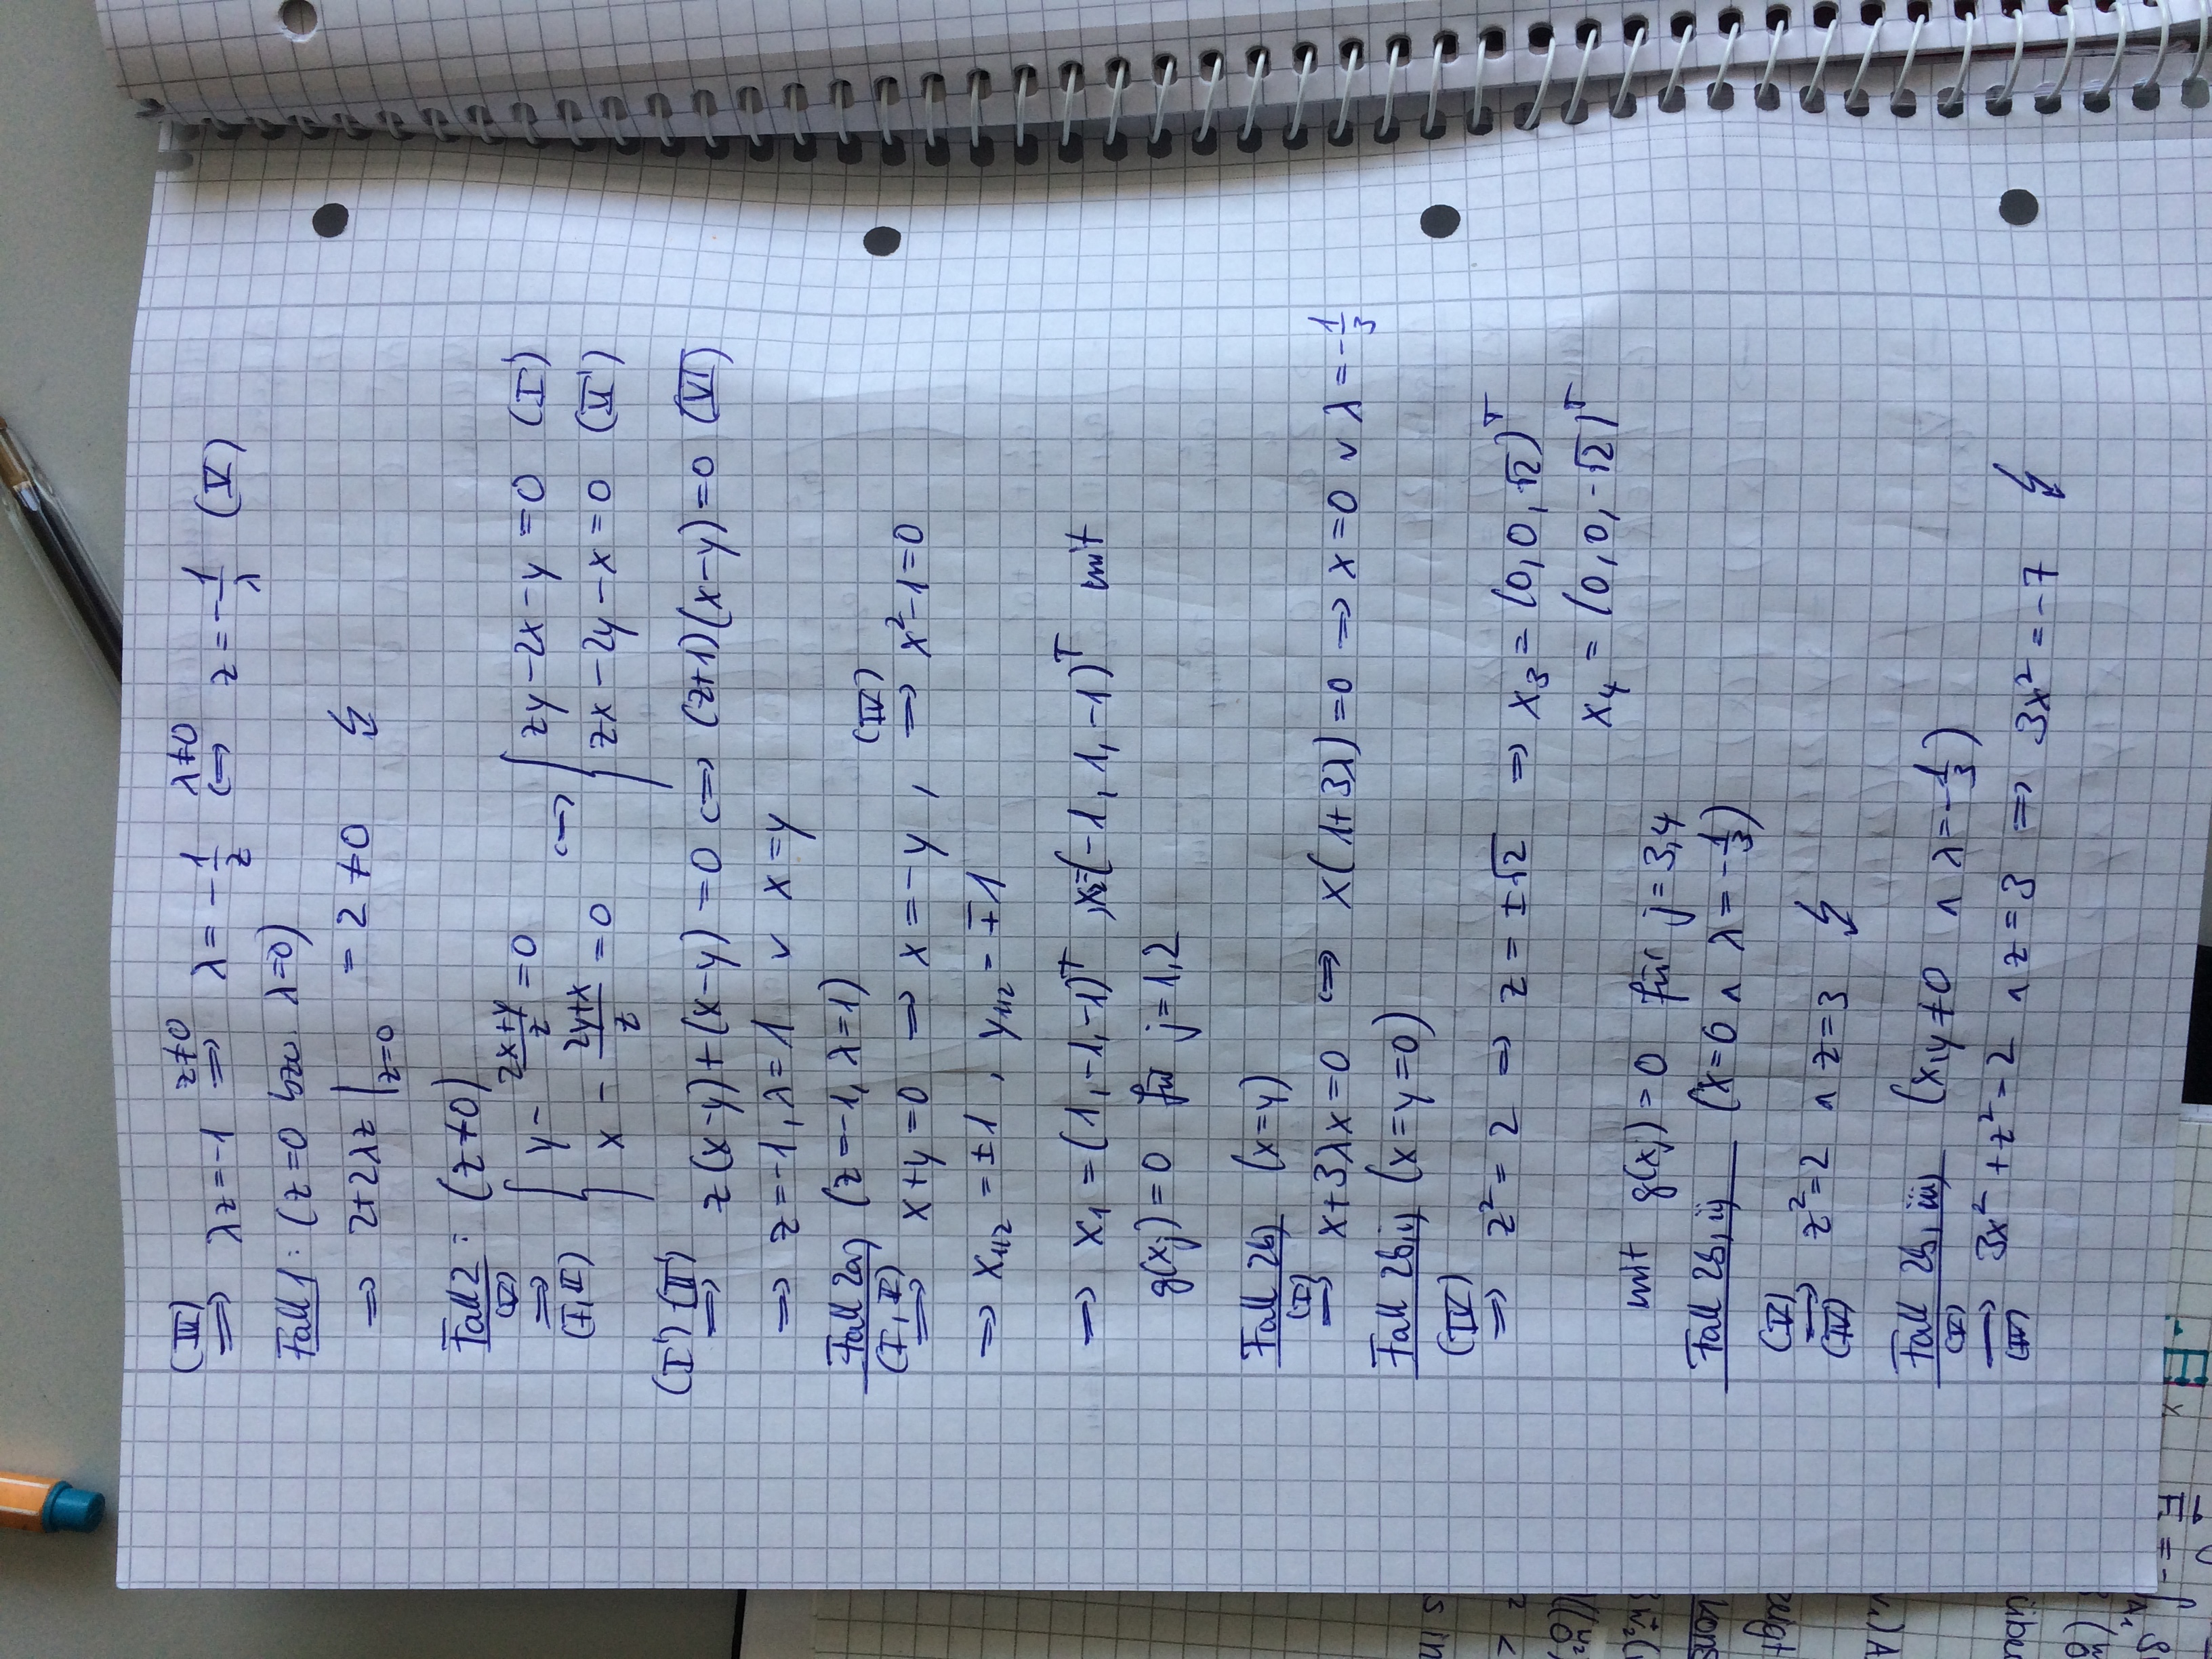 (III) ⟹ λz = -1 z≠0 ⟹ λ = -1/z λ≠0 ⟺ z = -1/λ (V)
Fall 1: (z=0 bzw. λ=0)
⟹ 2+2λz |z=0 = 2 ≠ 0 ↯
Fall 2: (z≠0)
(V) ⟹ (I,II) { y - (2x+y)/z = 0 ⟺ { zy - 2x - y = 0 (I')
x - (2y+x)/z = 0 zx - 2y - x = 0 (II')
(I')-(II') ⟹ z(x-y)+(x-y) = 0 ⟺ (z+1)(x-y) = 0 (VI)
⟹ z = -1, λ = 1 ∨ x = y
Fall 2a) (z=-1, λ=1)
(I, II) ⟹ x+y = 0 ⟹ x = -y, (IV) ⟹ x²-1 = 0
⟹ x1/2 = ±1, y1/2 = ∓1
⟹ x₁ = (1,-1,-1)ᵀ, x₂=(-1, 1, -1)ᵀ mit
g(xⱼ) = 0 für j=1,2
Fall 2b) (x=y)
(I) ⟹ x+3λx = 0 ⟺ x(1+3λ) = 0 ⟹ x = 0 ∨ λ = -1/3
Fall 2b,i) (x=y=0)
(IV) ⟹ z² = 2 ⟹ z = ±√2 ⟹ x₃ = (0, 0, √2)ᵀ
x₄ = (0, 0, -√2)ᵀ
mit g(xⱼ) = 0 für j=3,4
Fall 2b, ii) (x=0 ∧ λ = -1/3)
(V) ⟹ (IV) z² = 2 ∧ z = 3 ↯
Fall 2b, iii) (x,y≠0 ∧ λ = -1/3)
(V) ⟹ (IV) 3x² + z² = 2 ∧ z = 3 ⟹ 3x² = -7 ↯